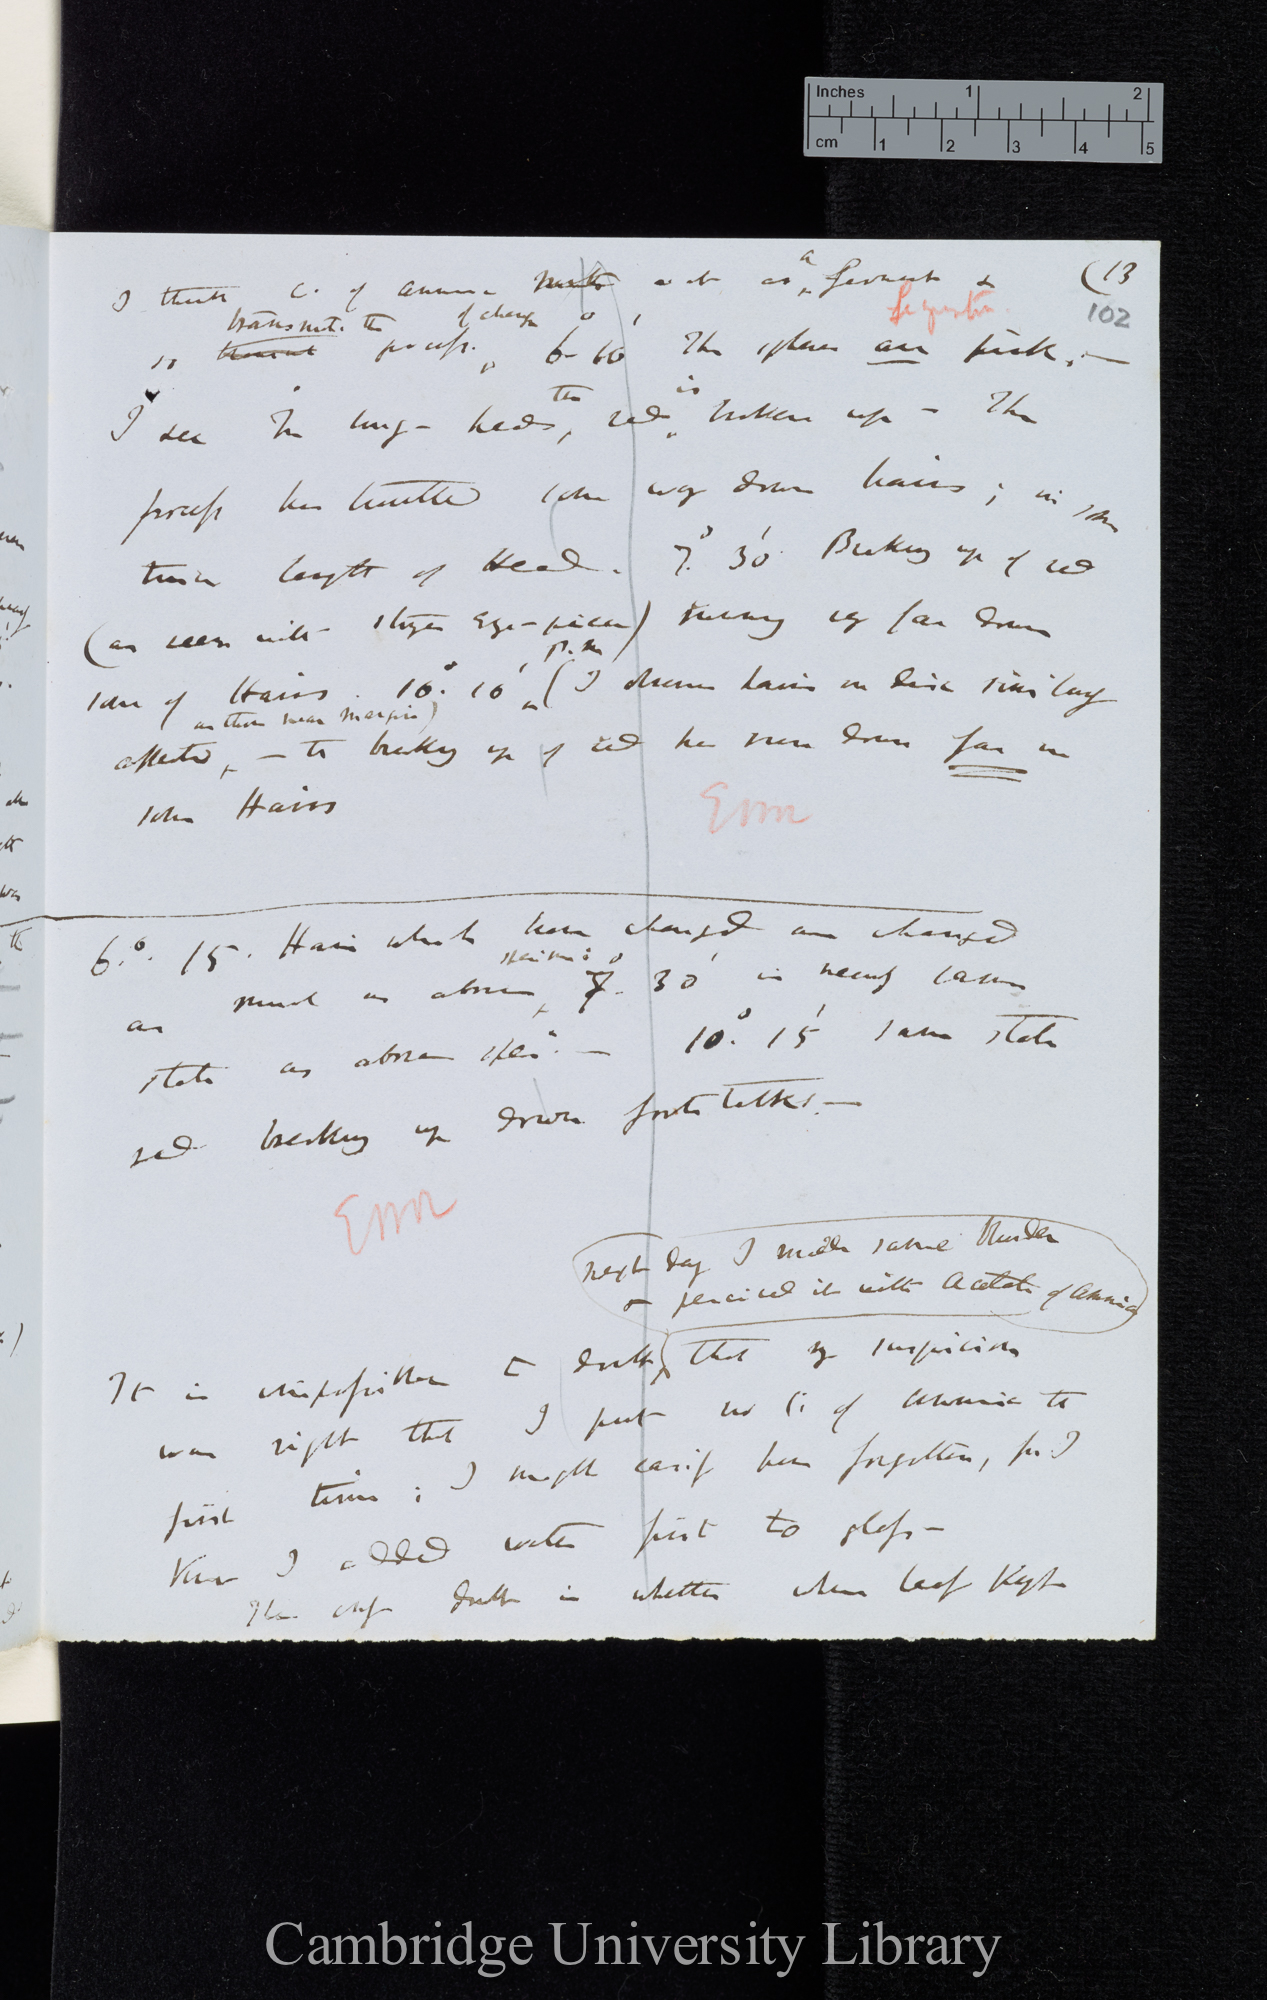 Inches 1 2
cm 1 2 3 4 5
(13
102
I think C. of ammonia acts as a ferment &
transmits the of change
so process. 6° 10' The spheres are pink.—
I see in long-heads, the red is broken up — The
process has travelled some way down hairs; in some
twice length of Head. 7° 30' Breaking up of red
(as seen with stronger Eye-piece) running very far down
some of Hairs. 10° 10' p.m (I observe hairs on disc similarly
as those near margin)
affected, — the breaking up of red has run down far in
some Hairs
Error
6° 15'. Hairs which have changed are changed
as much as above specimen: 7° 30' in nearly same
state as above spec. — 10° 15' same state
red breaking up down footstalks.—
Error
next day I made same blunder
& perceived it with Acetate of Ammonia
It is impossible to doubt that my suspicion
was right that I put no C. of ammonia the
first time; I might easily have forgotten, for I
know I added water first to glass—
The only doubt is whether when leaf kept
Cambridge University Library